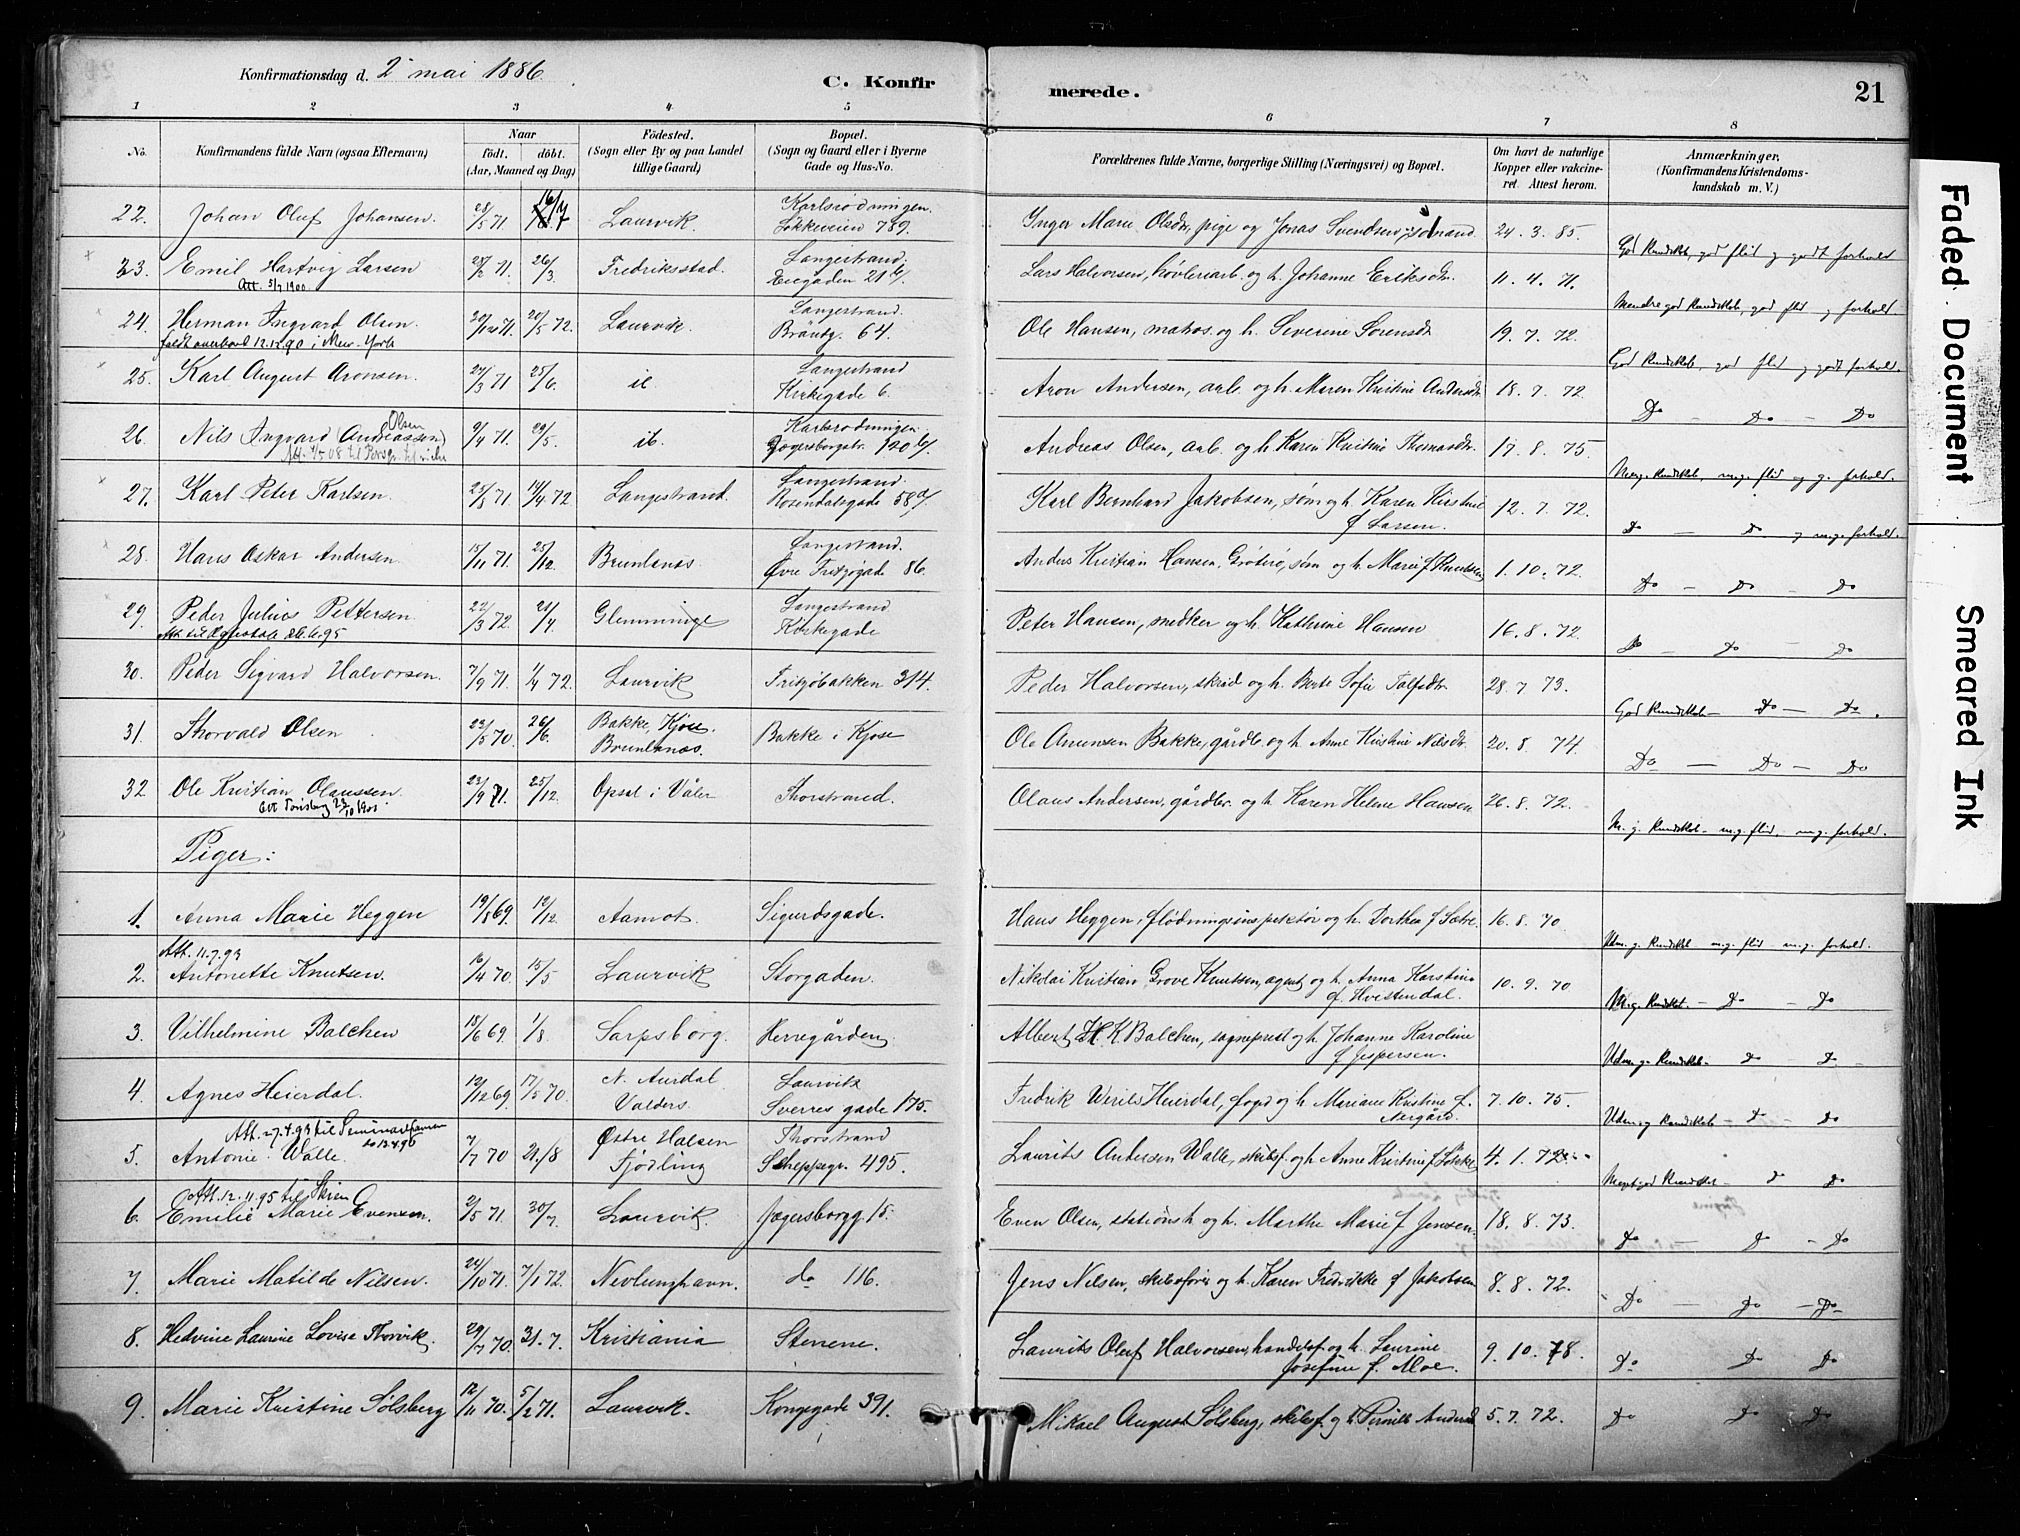 Konfirmationsdag d. 2 mai 1886.
C. Konfirmerede.
21
1 2 3 4 5 6 7 8
No. Konfirmandens fulde Navn (ogsaa Efternavn) Naar födt. döbt. (Aar, Maaned og Dag) Födested. (Sogn eller By og paa Landet tillige Gaard) Bopæl. (Sogn og Gaard eller i Byerne Gade og Hus-No. Forældrenes fulde Navne, borgerlige Stilling (Næringsvei) og Bopæl. Om havt de naturlige Kopper eller vakcineret. Attest herom. Anmærkninger, (Konfirmandens Kristendomskundskab m. V.)
22. Johan Oluf Johansen. 28/5 71. Laurvik. Karlsrodningen. Løkkeveien 789. Inger Marie Olsdr, pige og Jonas Svendsen, sømand 24. 3. 85. God Kundskab, god flid og godt forhold
23. Emil Hartvig Larsen 28/2 71. 26/3. Fredriksstad. Langestrand. 21 b/. Lars Halvorsen, høvleriarb. og h. Johanne Eriksdr. 11. 4. 71. Mendre god Kundskab, god flid og forhold
Att. 5/7 1900.
24. Herman Ingvard Olsen. 20/12 71. 20/5 72. Laurvik. Langestrand. 64. Ole Hansen, matros. og h. Severine Sørensdr 19. 7. 72. God Kundskab, god flid og godt forhold.
faldt overbord 12.12.90 i New-York
25. Karl August Aronsen. 24/3 71 25/6. ib. Langestrand Kirkegade 6. Aron Andersen, arb. og h. Maren Kristine Andersdr 18. 7. 72. Do — Do — Do
26. Nils Ingvard (Andreassen) Olsen 9/4 71. 29/5. ib. Karlsrodningen. Jegersborgstr. 120 b/. Andreas Olsen, arb. og h. Karen Kristine Thomasdr. 17. 8. 75. Meg. Kundskab, m.g. flid og g. forhold.
27. Karl Peter Karlsen. 25/5 71 14/4 72 Langestrand. Langestrand. Rosendalsgade 58 a/. Karl Bernhard Jakobsen, søm og h. Karen Kirstine f. Larsen. 12. 7. 72. Do — Do og m.g. forhold.
28. Hans Oskar Andersen. 15/11 71. 25/12. Brunlanæs. Langestrand. Øvre Fritzøgade 86. Anders Kristian Hansen, søm og h. Marie f. Knudsen 1. 10. 72. Do — Do — Do
29. Peder Julius Pettersen. 22/3 72. 21/4. Glemminge Langestrand Kirkegade Peter Hansen, snedker og h. Kathrine Hansen 16. 8. 72. Do — Do — Do
30. Peder Sigvard Halvorsen. 7/9 71. 1/4 72. Laurvik Fritzøbakken 314. Peder Halvorsen, skræd og h. Berte Sofie 28. 7 73. God Kundskab — Do — Do.
31. Thorvald Olsen 23/5 70. 26/6. Bakke, Kjose. Brunlanæs. Bakke i Kjose Ole Amundsen Bakke, gårdb. og h. Anne Kirstine Nilsdr. 20. 8. 74. Do — Do — Do
32 Ole Kristian Olaussen. 23/9 71. 25/12. Opsal i Våler Thorstrand. Olaus Andersen, gårdbr. og h. Karen Helene Hansen 26. 8. 72. M. g. Kundskab — m.g. flid, m.g. forhold.
Att Tønsberg 23/10 1900
Piger:
1. Anna Marie Heggen 19/8 69. 19/12. Aamot. Sigurdsgade. Hans Heggen, flødningsinspektør og h. Dorthea f. Sætre 16. 8. 70. Udm. g. Kundskab m.g. flid m.g. forhold.
Att. 11.7.93
2. Antonette Knutsen. 16/4 70 15/5 Laurvik Storgaden. Nikolai Kristian Grove Knutsen, agent og h. Anna Karstine f. Hvistendal. 10. 9. 70 M.g. Kundskab — Do — Do
3. Vilhelmine Balchen 15/6 69. 1/8. Sarpsborg. Herregården. Albert H. K. Balchen, sogneprest og h. Johanne Karoline f. Jespersen. Udm. g. Kundskab — Do Do
4. Agnes Heierdal. 12/12 69. 17/5 70. N. Aurdal Valders. Laurvik Sverres gade 175. Fredrik Heierdal, fogd og h. Mariane Kristine f. Aargård. 7. 10. 75. Udm. g. Kundskab — Do — Do
Att. 27.4.93 til
5. Antonie Walle. 7/7 70 21/8 Østre Halsen Fjødling Thorstrand Skeppsgr. 495. Laurits Andersen Walle, skibsf. og h. Anne Kristine f. Løkke 4. 1. 72 Meget god Kundskab — Do Do
Att. 12. 11. 95 til Skien
6. Emilie Marie Evensen. 2/5 71. 30/7. Laurvik. Jegersborgg 15. Even Olsen, stationsk og h. Marthe Marie f. Jensen. 18. 8. 73. Do — Do — Do
7. Marie Matilde Nilsen. 24/10 71. 7/1 72. Nevlunghavn. do 116. Jens Nilsen, skibsfører og h. Karen Fredrikke f. Jakobsen 8. 8. 72. Do — Do — Do
8. Hedvine Laurine Lovise Thorvik. 29/7 70. 31. 7. Kristiania Stenene. Laurits Oluf Halvorsen, handelsf. og h. Laurine Josefine f. Moe. 9. 10. 78. Do Do Do
9. Marie Kristine Sølsberg 12/11 70. 5/2 71. Laurvik. Kongegade 391. Mikael August Sølsberg, skibsf. og h. Pernille Andersd 5. 7. 72. Do Do Do
Faded Document
Smeared Ink